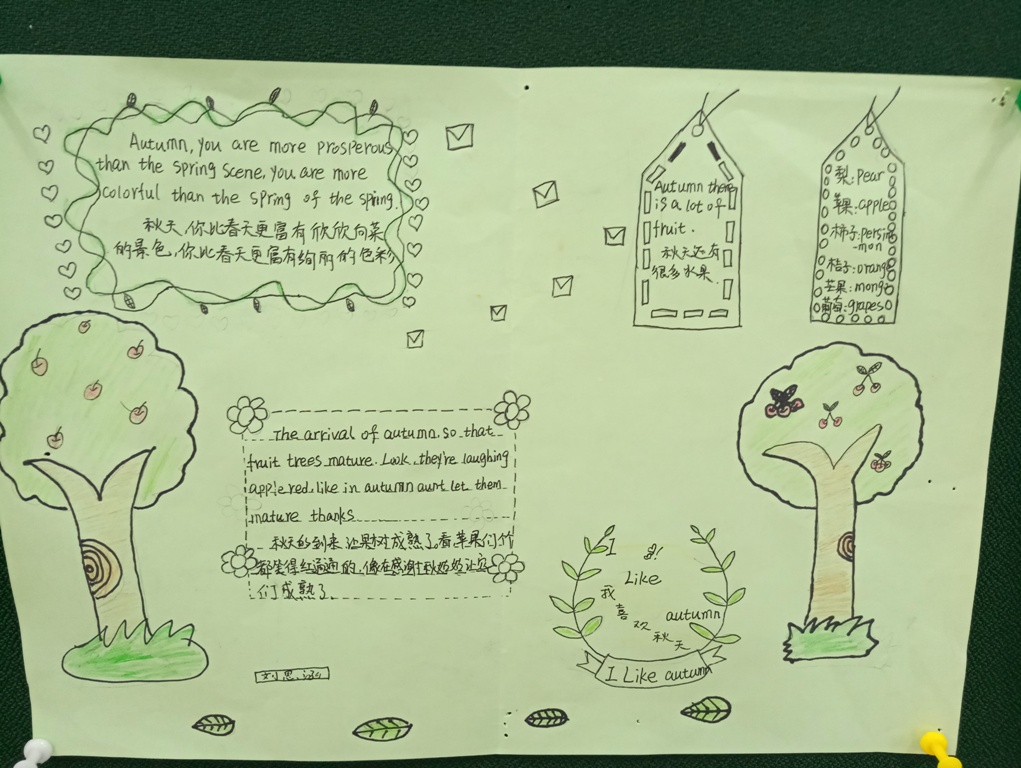 Autumn, you are more prosperous
than the spring scene, you are more
colorful than the spring of the spring.
秋天,你比春天更富有欣欣向荣
的景色,你比春天更富有绚丽的色彩
Autumn there
is a lot of
fruit.
秋天还有
很多水果.
梨:pear
苹果:apple
柿子:persim
-mon
桔子:orange
芒果:mongo
葡萄:grapes
The arrival of autumn. so that
fruit trees mature. Look, they're laughing
apple red, like in autumn aunt let them
mature thanks
秋天的到来,让果树成熟了.看苹果们个
都笑得红通通的,像在感谢秋奶奶让它
们成熟了
I
Like
autumn
我
喜
欢
秋
天
I Like autumn
刘思涵